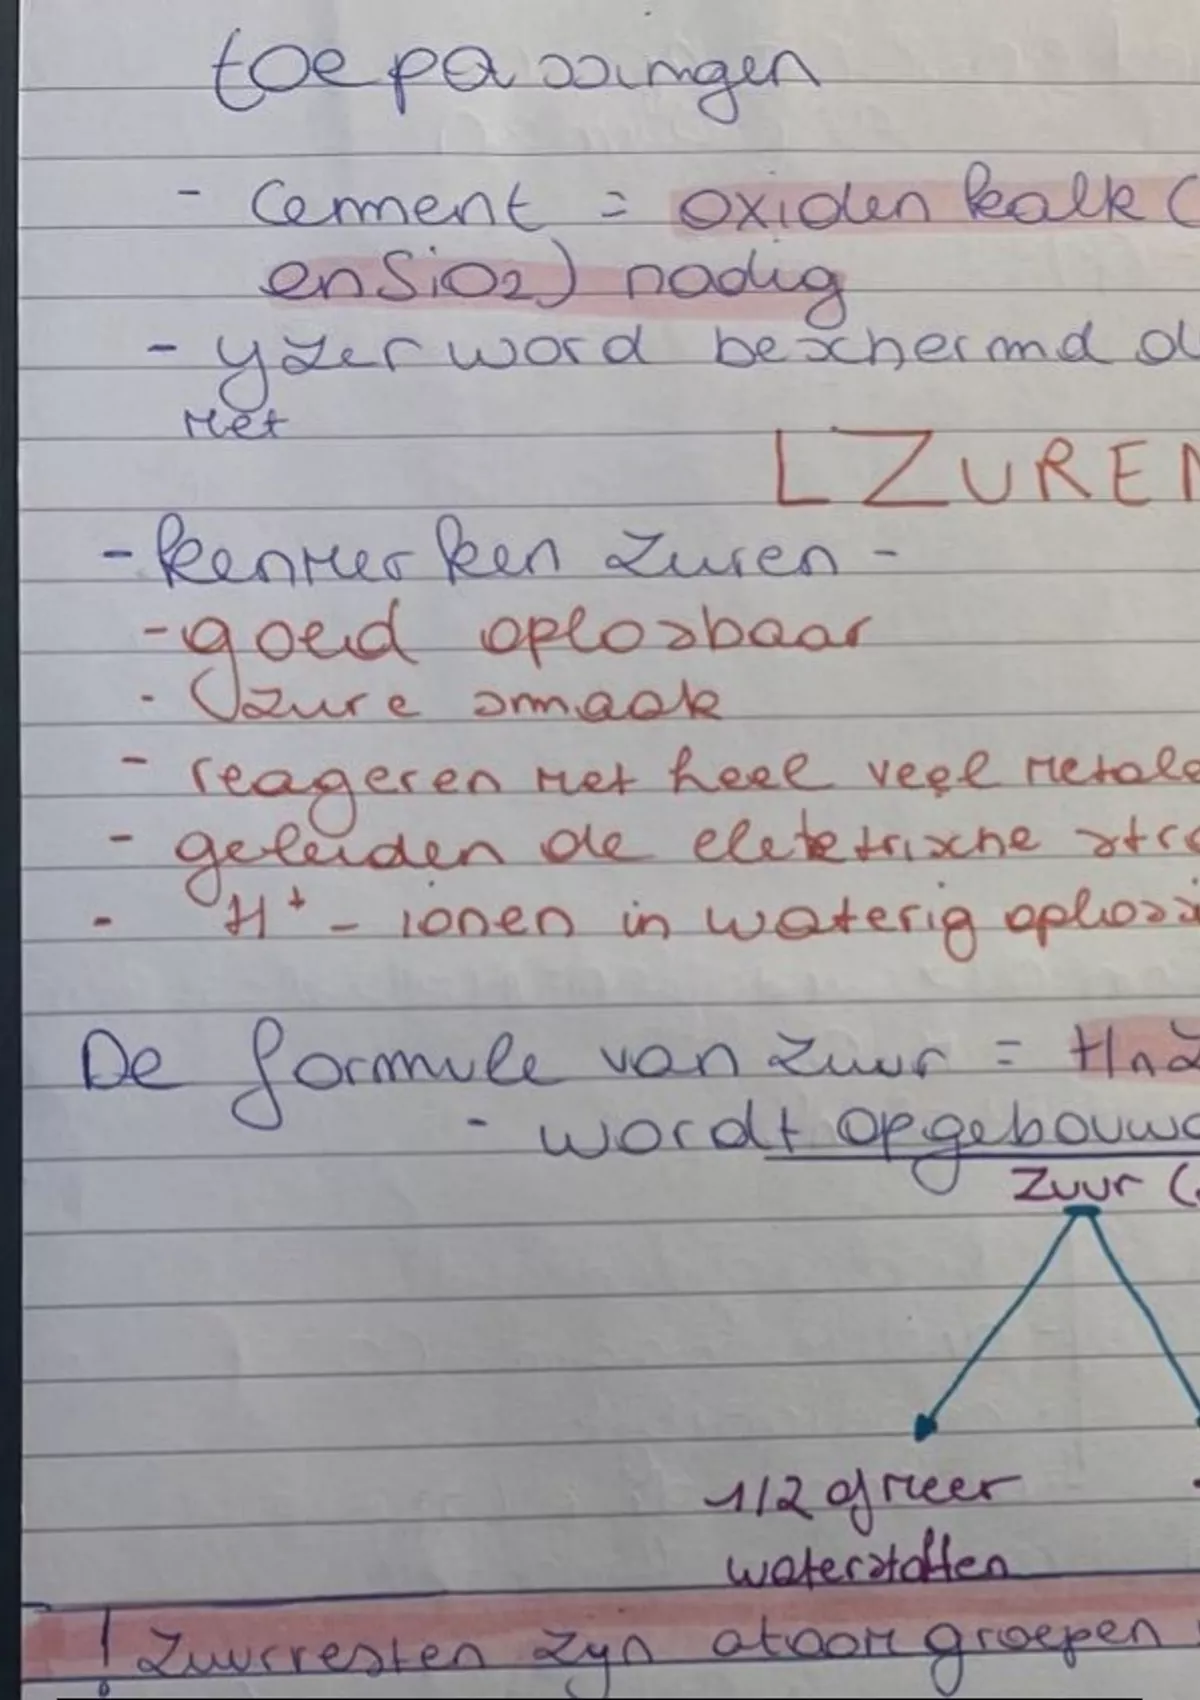 toepassingen
- Cement = oxiden kalk (
en SiO2) nodig
- yzer word beschermd d
met
L ZUREN
- kenmerken zuren -
- goed oplosbaar
- zure smaak
- reageren met heel veel metale
- geleiden de elektrische stro
- H+ - ionen in waterig oploss
De formule van zuur = HnZ
- wordt opgebouwd
Zuur (
1/2 of meer
waterstoffen
! Zuurresten zyn atoom groepen